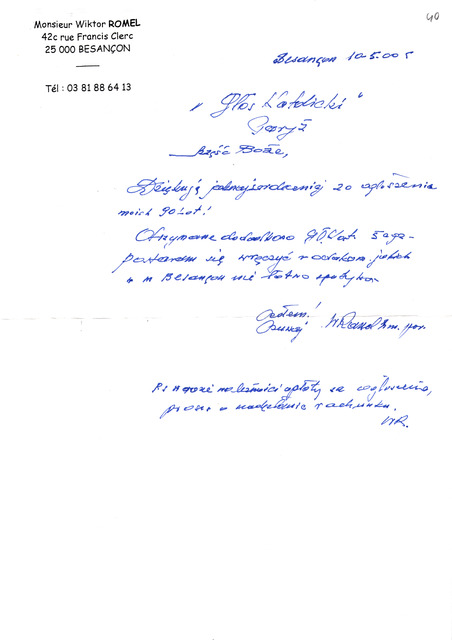 40
Monsieur Wiktor ROMEL
42c rue Francis Clerc
25 000 BESANÇON
Tél : 03 81 88 64 13
Besançon 10.5.005
„Głos Katolicki"
Paryż
Szczęść Boże,
Dziękuję jaknajserdeczniej za ogłoszenia
moich 90 lat!
Otrzymane dodatkowo 5 egz-
postaram się wręczyć rodakom, jakich
w Besançon nie łatwo spotykać
Czołem!
W Romel
PS należności opłaty za ogłoszenia,
proszę o nadesłanie rachunku.
WR.